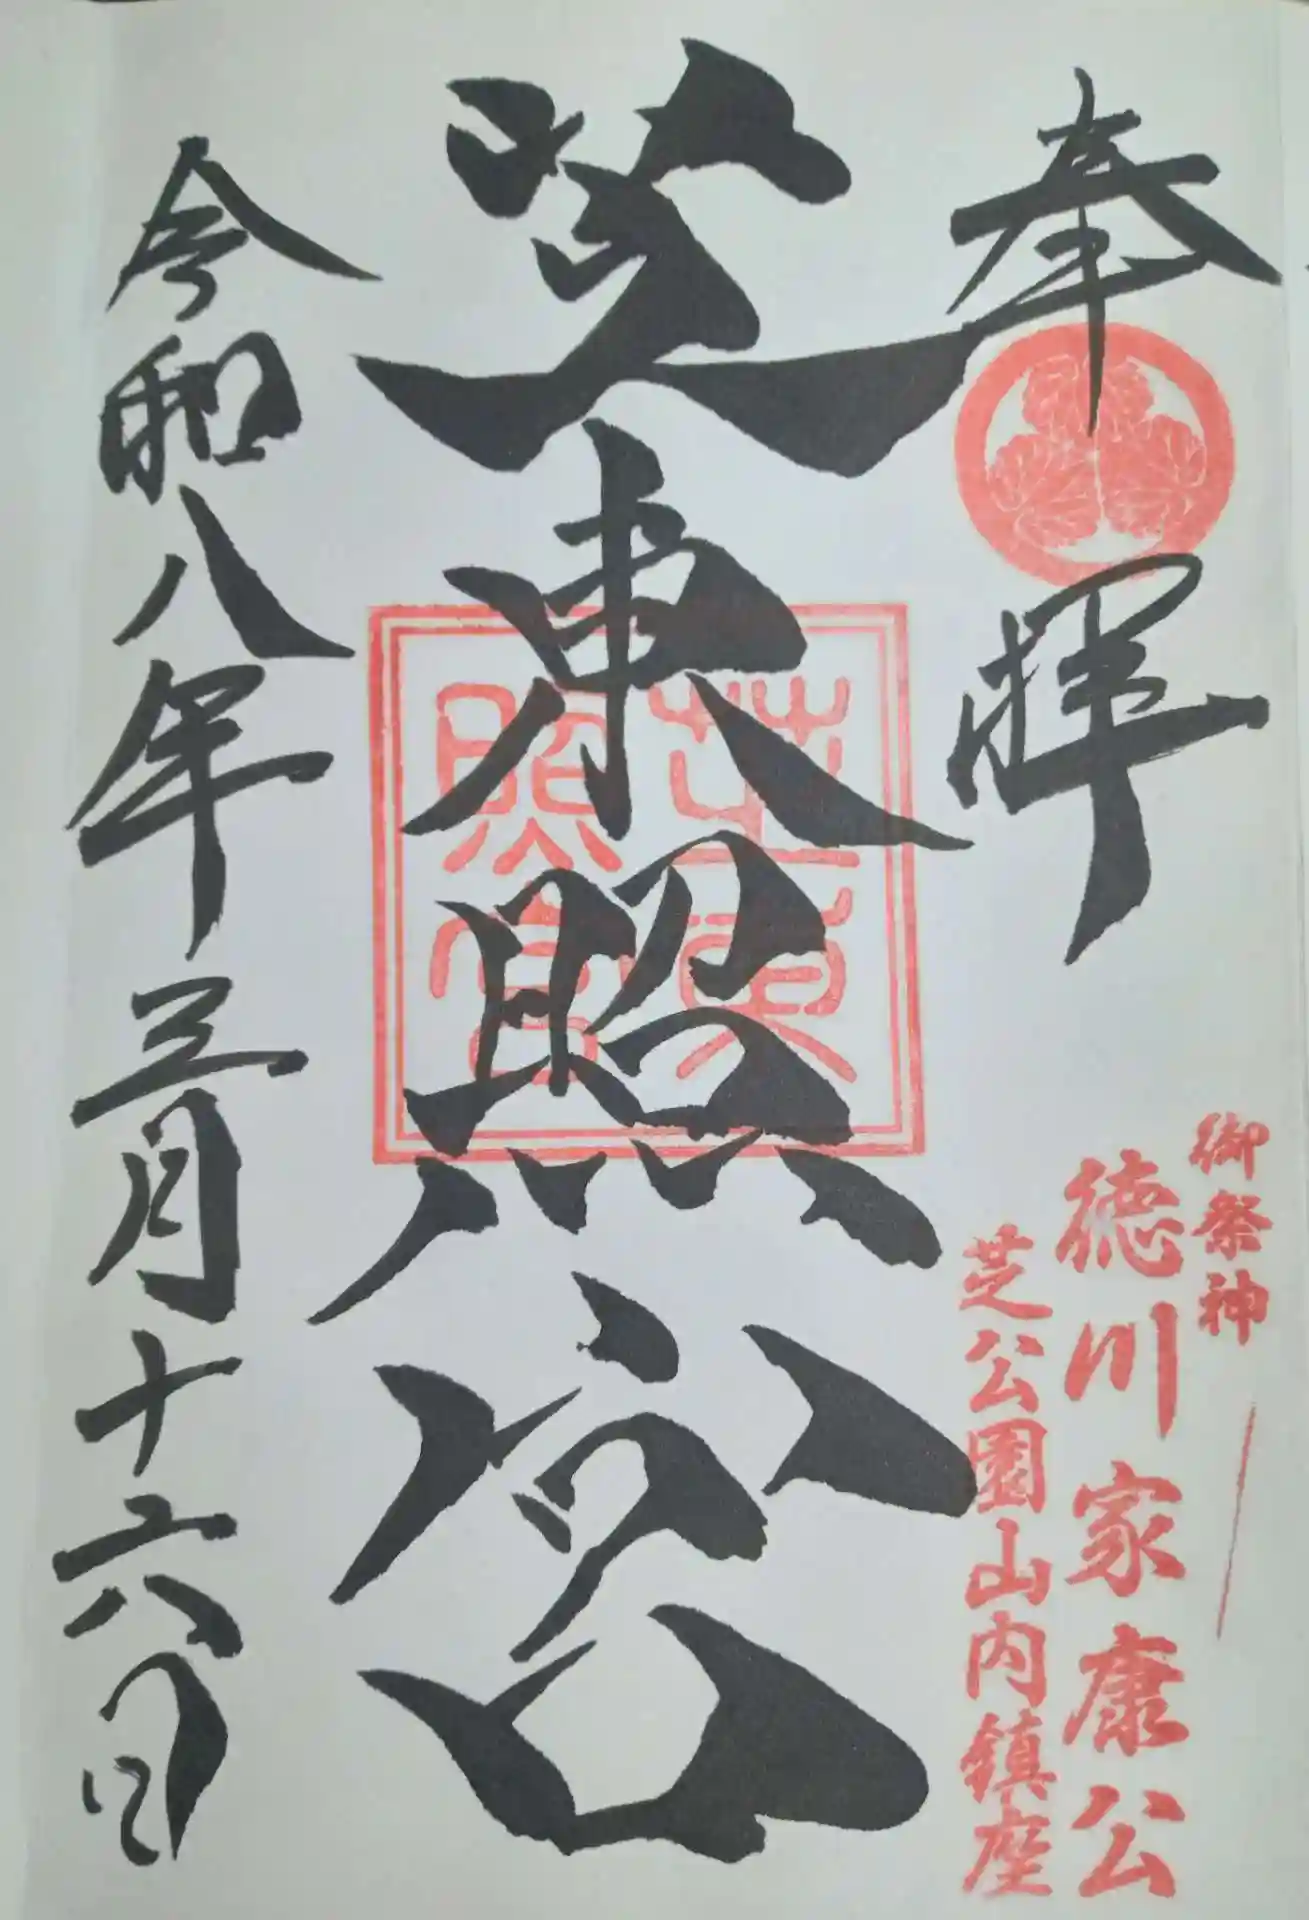 奉拝
御祭神
徳川家康公
芝公園山内鎮座
芝東照宮
芝東
照宮
令和八年三月十六日